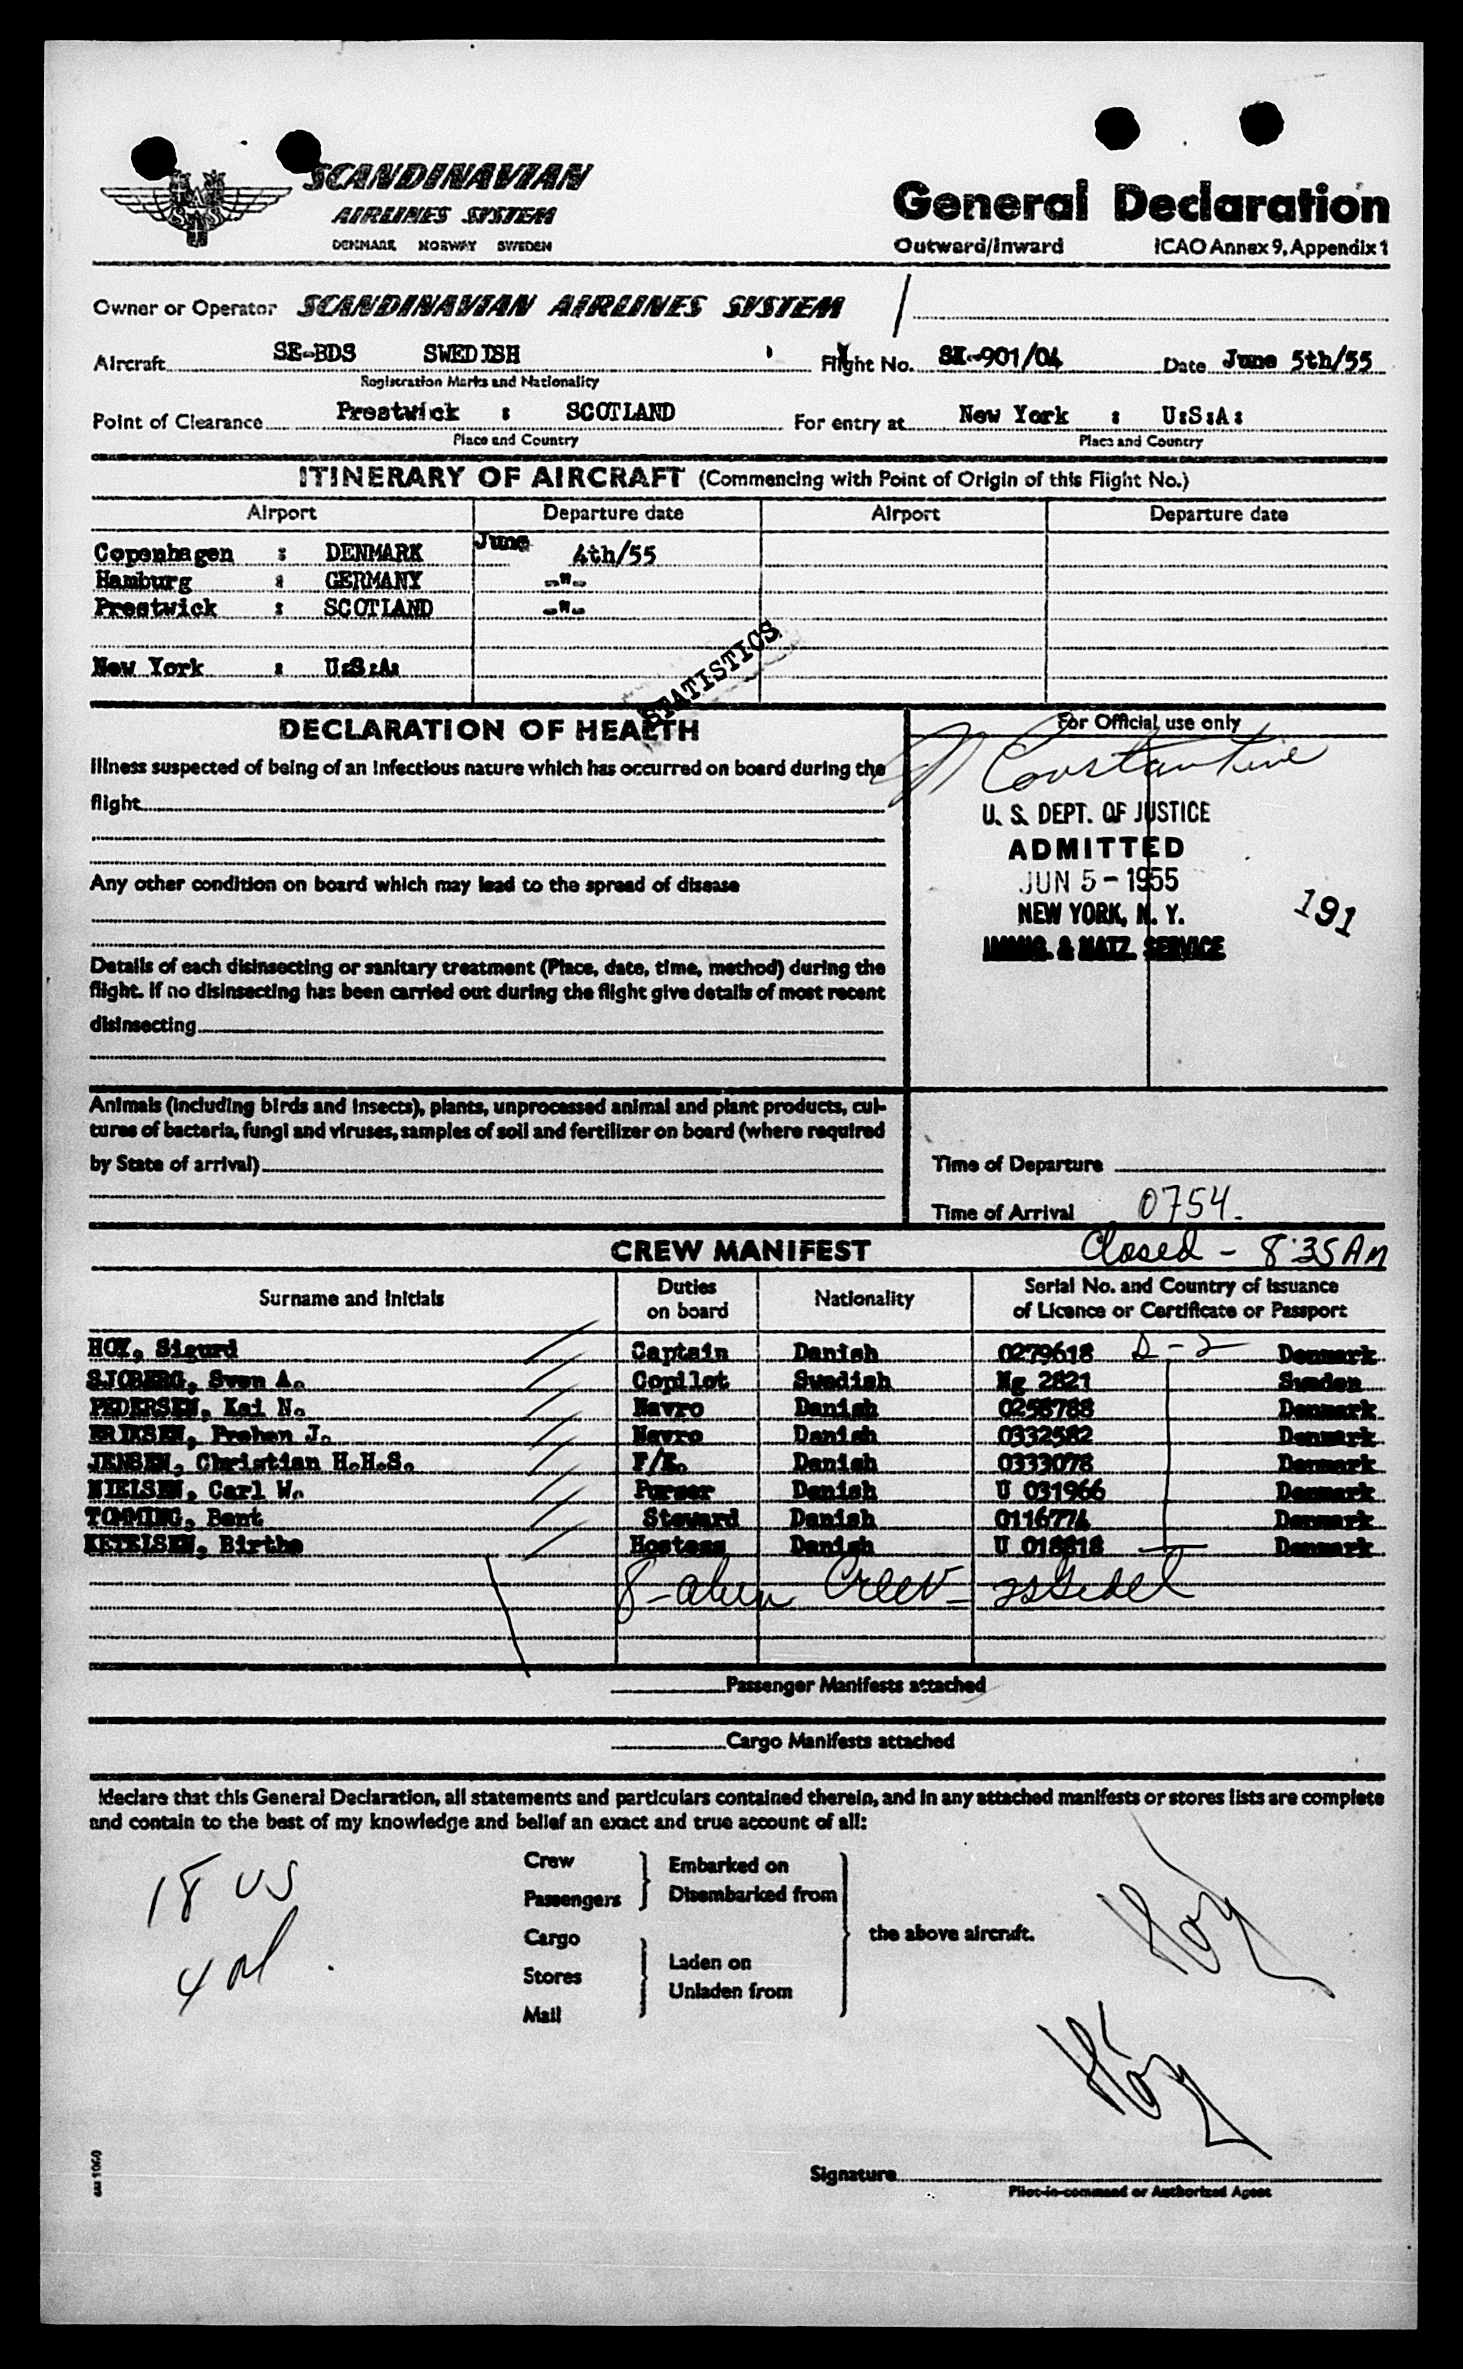 SCANDINAVIAN
AIRLINES SYSTEM
DENMARK NORWAY SWEDEN
General Declaration
Outward/Inward ICAO Annex 9, Appendix 1
Owner or Operator SCANDINAVIAN AIRLINES SYSTEM
Aircraft SE-BDS SWEDISH Flight No. SK-901/04 Date June 5th/55
Registration Marks and Nationality
Point of Clearance Prestwick : SCOTLAND For entry at New York : U:S:A:
Place and Country Place and Country
ITINERARY OF AIRCRAFT (Commencing with Point of Origin of this Flight No.)
Airport Departure date Airport Departure date
Copenhagen : DENMARK June 4th/55
Hamburg : GERMANY -"-
Prestwick : SCOTLAND -"-
New York : U:S:A:
STATISTICS
DECLARATION OF HEALTH
Illness suspected of being of an infectious nature which has occurred on board during the
flight
Any other condition on board which may lead to the spread of disease
Details of each disinsecting or sanitary treatment (Place, date, time, method) during the
flight. If no disinsecting has been carried out during the flight give details of most recent
disinsecting
For Official use only
Constantine
U. S. DEPT. OF JUSTICE
ADMITTED
JUN 5 - 1955
NEW YORK, N. Y.
IMMIG. & NATZ. SERVICE
191
Animals (including birds and insects), plants, unprocessed animal and plant products, cul-
tures of bacteria, fungi and viruses, samples of soil and fertilizer on board (where required
by State of arrival)
Time of Departure
Time of Arrival 0754.
CREW MANIFEST Closed - 8:35 AM
Surname and Initials Duties on board Nationality Serial No. and Country of Issuance of Licence or Certificate or Passport
HOY, Sigurd Captain Danish 0279618 D-2 Denmark
SJOBERG, Sven A. Copilot Swedish Ng 2821 Sweden
PEDERSEN, Kai N. Navro Danish 0258788 Denmark
ERIKSEN, Preben J. Navro Danish 0332582 Denmark
JENSEN, Christian H.H.S. F/E. Danish 0333078 Denmark
NIELSEN, Carl W. Purser Danish U 031966 Denmark
TOMMING, Bent Steward Danish 0116774 Denmark
KETELSEN, Birthe Hostess Danish U 018818 Denmark
8 - alien Crew -
Passenger Manifests attached
Cargo Manifests attached
I declare that this General Declaration, all statements and particulars contained therein, and in any attached manifests or stores lists are complete
and contain to the best of my knowledge and belief an exact and true account of all:
18 US
4 al
Crew
Passengers
Embarked on
Disembarked from
Cargo
Stores
Mail
Laden on
Unladen from
the above aircraft.
Hoy
Hoy
Signature
Pilot-in-command or Authorized Agent